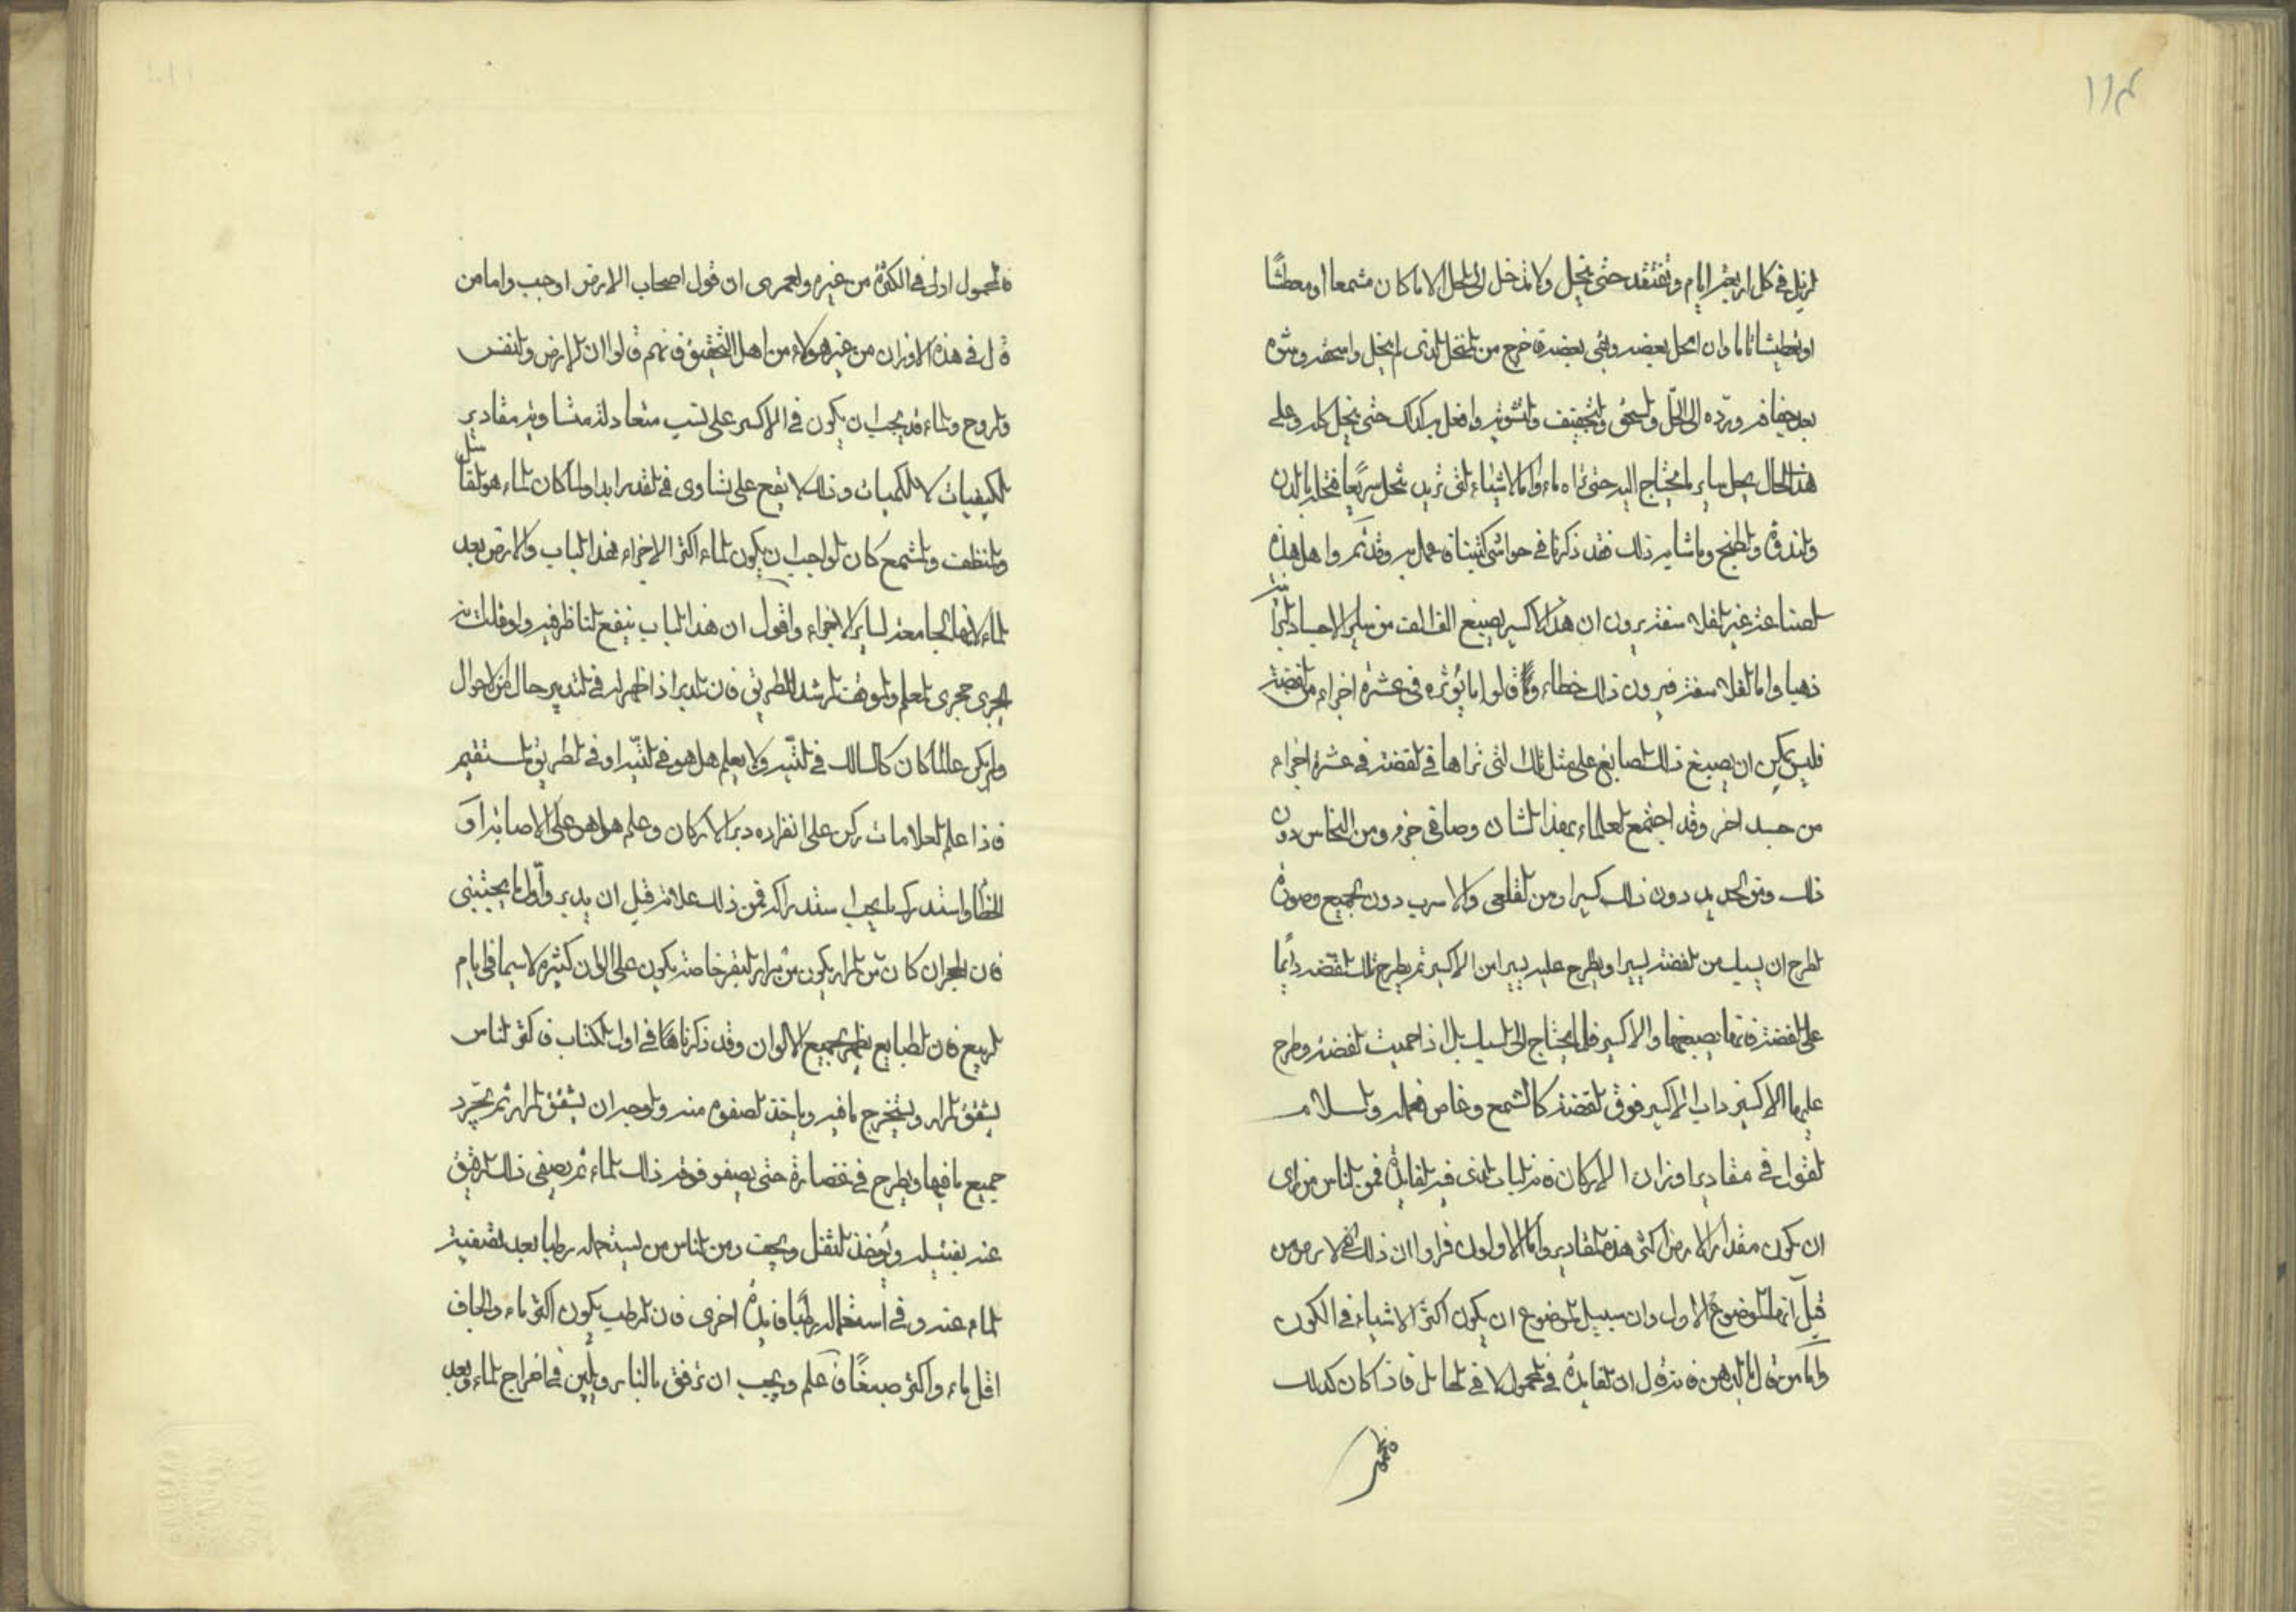 ١١٤
لزبل في كل اربعة ايام وتفتقد حتى ينحل ولا تدخل الى الحل الا ما كان مشمعا او معطشا
او تعطيشا تاما وان انحل بعضه وبقي بعضه فاخرج من المنحل الذي لم ينحل واسحقه وشوه
بعد جفافه ورده الى الحل والسحق والتجفيف والتشوية وافعل به كذلك حتى ينحل كله وعلى
هذا الحال يحل ساير ما يحتاج اليه حتى تراه ماء واما الاشياء التي تريد تحل سريعا فتحل بالدن
والندوة والطبخ وما شابه ذلك فقد ذكرنا في حواشي كتبنا فاعمل به وقد تم واهل هذه
الصناعة غير الفلاسفة يرون ان هذا الاكسير يصبغ الف الف من ساير الاجساد
ذهبا واما الفلاسفة فيرون ذلك خطاء وقالوا ما يؤثره في عشرة اجزاء من الفضة
فليس يمكن ان يصبغ ذلك الصابغ على مثل تلك التي تراها في الفضة في عشرة اجزاء
من جسد اخر وقد اجتمع العلماء بهذا الشان وصافي جزء ومن النحاس دون
ذلك ومن الحديد دون ذلك كسيرا ومن القلعي والاسرب دون الجميع وصورة
الطرح ان يسبك من الفضة يسيرا ويطرح عليه يسيرا من الاكسير ثم يطرح تلك الفضة دائما
على الفضة فانها يصبغها والاكسير فلا يحتاج الى السبك بل اذا حميت الفضة وطرح
عليها الاكسير ذاب الاكسير فوق الفضة كالشمع وغاص فيها والسلام
القول في مقادير اوزان الاركان فانه الباب الذي فيه الفايدة فمن الناس من راى
ان يكون مقدار الارض اكثر هذه المقادير واما الاولون فراوا ان ذلك للارض من
قبل انها الموضوع الاول وان سبيل الموضوع ان يكون اكثر الاشياء في الكون
واما من قال بالدهن فانه قال ان الفايدة في المحمول لا في الحامل فاذا كان كذلك
فالمحمول
فالمحمول اولى في الكثرة من غيره ولعمرى ان قول اصحاب الارض اوجب واما من
قال في هذه الاوزان من غير هولاء من اهل التحقيق فانهم قالوا ان الارض والنفس
والروح والماء قد يجب ان يكون في الاكسير على نسب متعادلة متساوية مقادير
الكيفيات لا الكميات وذلك لا يقع على تساوى في القدر ابدا ولما كان الماء هو مثل
والمنظف والمشمع كان الواجب ان يكون الماء اكثر الاجزاء فهذا الباب والارض بعد
الماء لانها الجامعة لساير الاجزاء واقول ان هذا الباب ينفع الناظر فيه ولو قلت انه
يجري مجرى المعلم والموقف المرشد الطريق فان المدبر اذا ظهر له في التدبير حال من الاحوال
ولم يكن عالما كان كالسالك في التيه ولا يعلم هل هو في التيه او في الطريق المستقيم
فاذا علم العلامات ركن على انفراده دبر الاركان وعلم هل هو على الاصابة او
الخطأ واستدرك ما يجب استدراكه فمن ذلك علامة قبل ان يدبر واول ما
فان الحجر ان كان من المرار يكون من مرار البقر خاصة يكون على الوان كثيرة لاسيما في ايام
الربيع فان الطبايع يظهر بجميع الالوان وقد ذكرناها في اول الكتاب فاكثر الناس
يشقق المرار ويستخرج ما فيه وياخذ الصفوة منه والوجه ان يشقق المرار ثم يجرد
جميع ما فيها ويطرح في غضارة حتى يصفو فوقه ذلك الماء ثم يصفى ذلك الرقيق
عنه بفتيله ويؤخذ الثفل ويجفف ومن الناس من يستعمله رطبا بعد تصفية
الماء عنه وفي استعماله رطبا فايدة اخرى فان الرطب يكون اكثر ماء والجاف
اقل ماء واكثر صبغا فاعلم ويجب ان ترفق بالنار ويلين في اخراج الماء وبعد